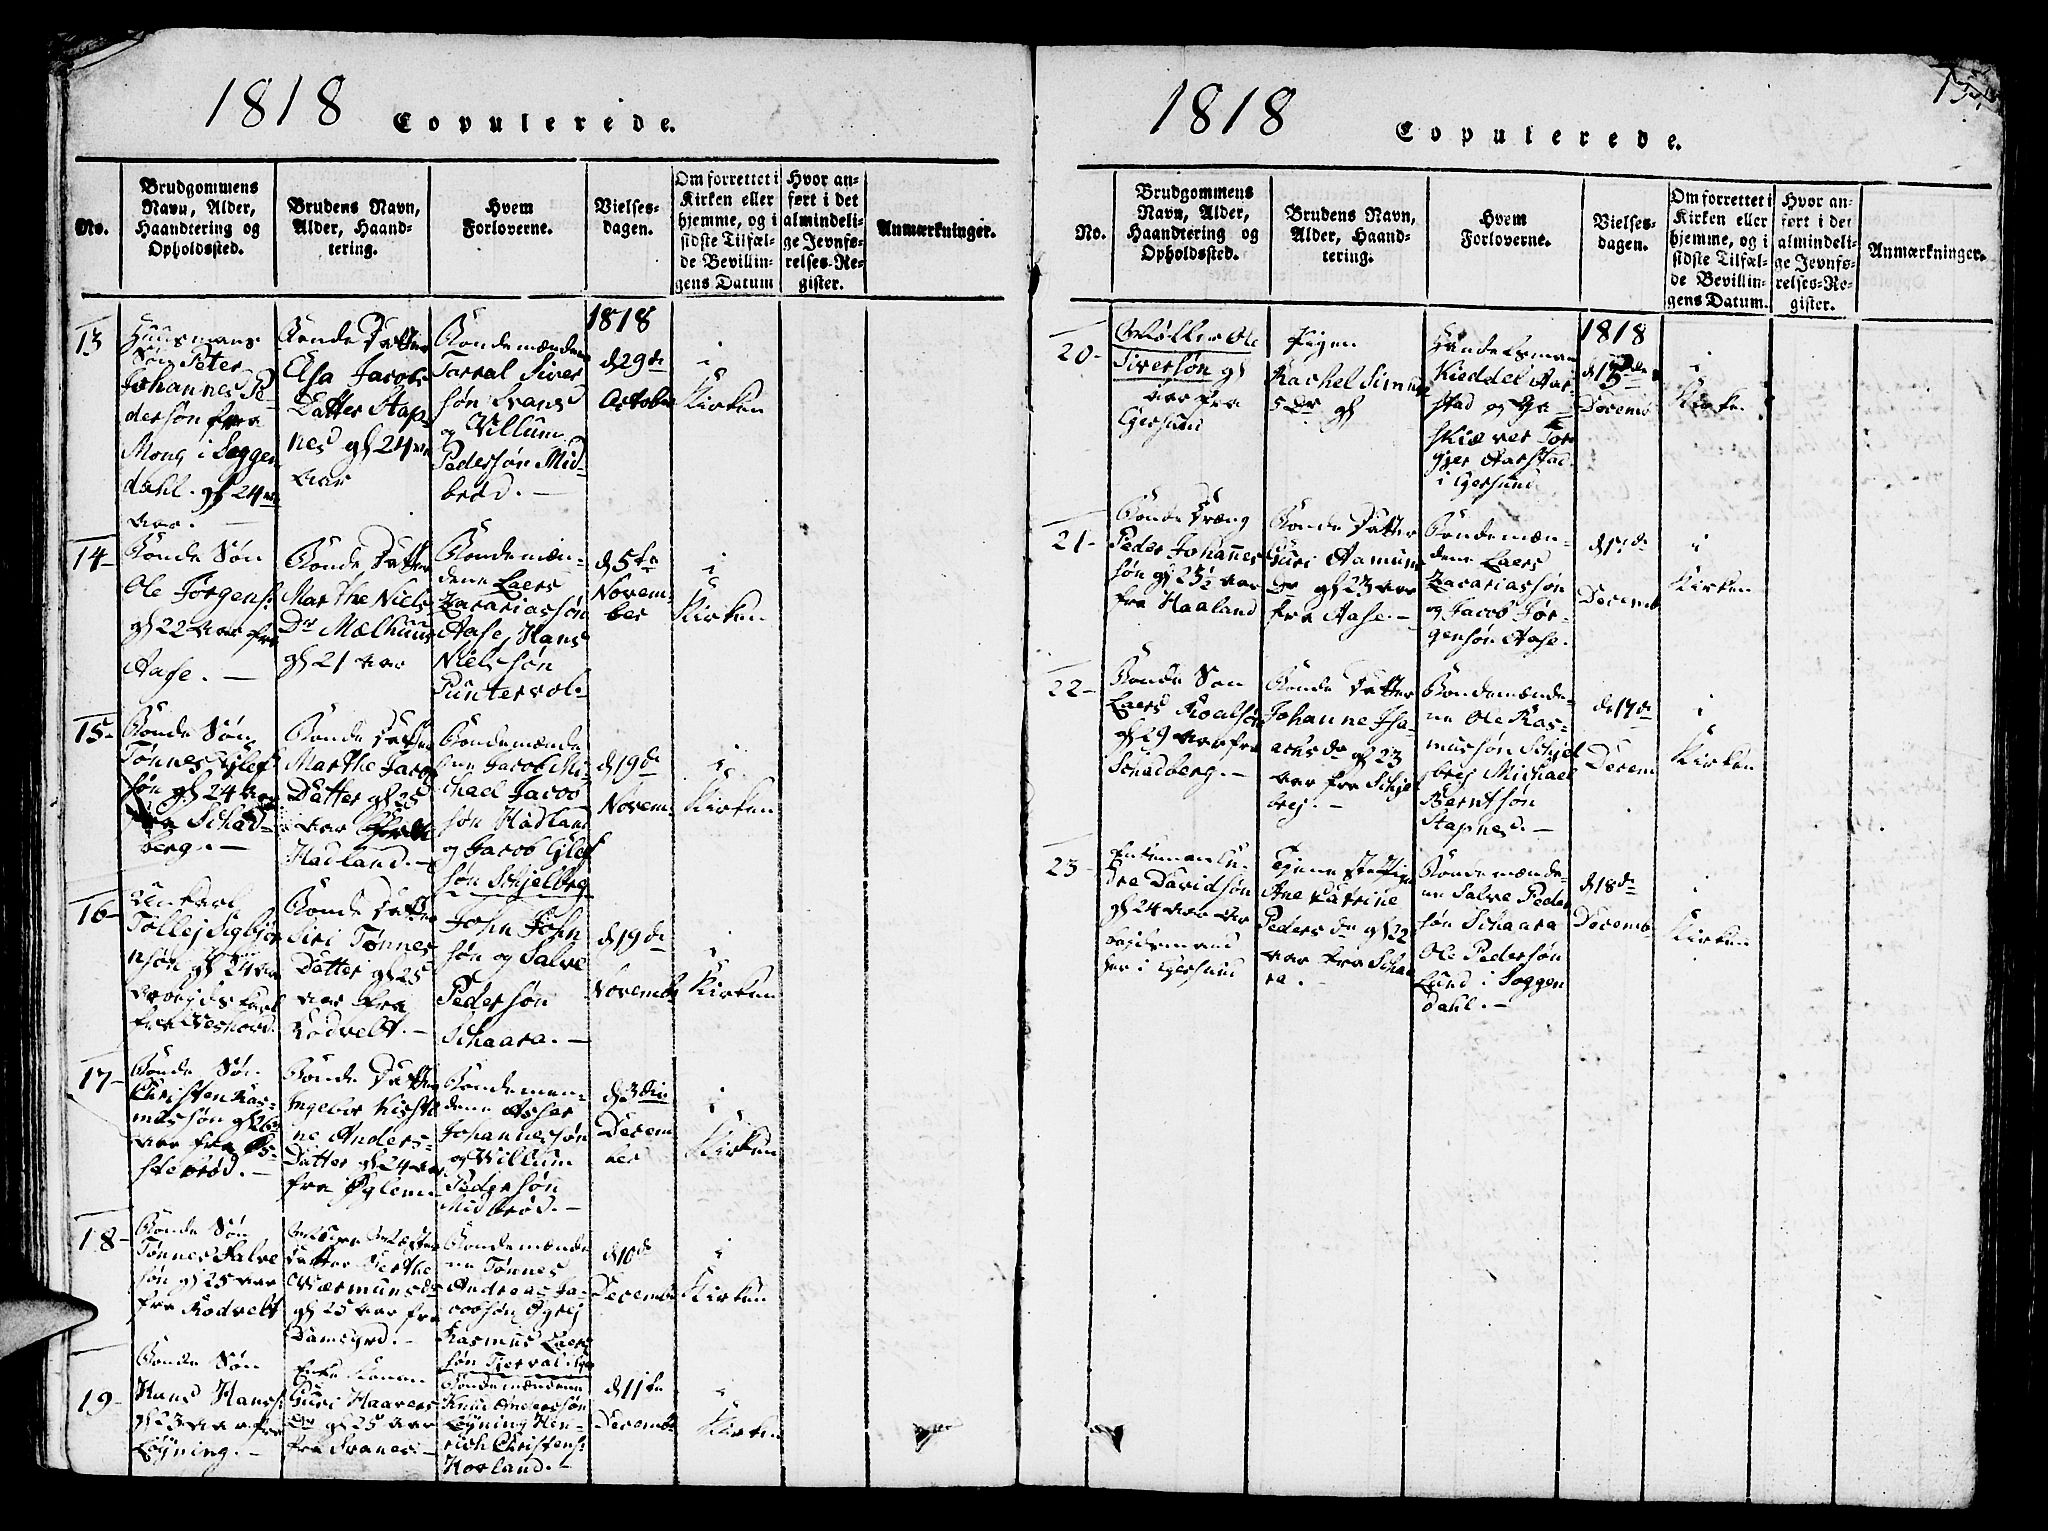 1818 Copulerede.
No.
Brudgommens
Navn, Alder,
Haandtering og
Opholdssted.
Brudens Navn,
Alder, Haand-
tering.
Hvem
Forloverne.
Vielses-
dagen.
Om forrettet i
Kirken eller
hjemme, og i
sidste Tilfæl-
de Bevillin-
gens Datum
Hvor an-
ført i det
almindeli-
ge Jevnfø-
relses-Re-
gister.
Anmærkninger.
13
Huusmans
Søn Peter
Johannes Pe-
dersøn fra
Mong i Soggen
dahl. gl 24
Aar. —
Bonde Datter
Elsa Jacobs
Datter Stap-
nes gl 24
Aar
Bondemændene
Torral Siver
søn Svanes
og Villum
Pedersøn Mid-
brød. —
1818
d 29de
October
i
Kirken
14-
Bonde Søn
Ole Jørgens:
gl 22 Aar fra
Aase. —
Bonde Datter
Marthe Niels
Dr Mælhuus
gl 21 Aar
Bondemæn-
dene Laers
Zacariassøn
Aase, Hans
Nielssøn
Puntervol-
d 5te
Novem-
ber
i
Kirken
15-
Bonde Søn
Tønnes Glef
søn gl 24 Aar
fra Schad-
berg. —
Bonde Datter
Marthe Jacob
Datter gl 25
Aar
Hadland. —
Bondemænde
ne Jacob Mi-
chael Jacob
søn Hadland
og Jacob Glef
søn Schjelbrej
d 19de
Novem-
i
Kirken
16-
Tollej Sigbjør
nsøn gl 24 Aar
fra
Bonde Datter
Siri Tønnes
Datter gl 25
Aar fra
Rodvelt. —
John John
søn og Salve
Pedersøn
Schaara. —
d 19de
Novemb
i
Kirken
17-
Bonde Søn
Christen Ras-
mussøn gl 26
Aar fra
stebrød. —
Bonde Datter
Ingebor Kirsti
ne Anders-
Datter gl 24 Aar
fra Øglem
Bondemæn-
dene Asser
Johannessøn
og Villum
Pedersøn
Midbrød. —
d 3die
Decem
ber
i
Kirken
18-
Bonde Søn
Tønnes Salve
søn gl 25 Aar
fra Rodvelt
Datter Berthe
gl 25 Aar fra
Damsgrd. —
Bondemænde
ne Tønnes
Andreas Ja-
cobsøn Øgrej
Rasmus Laers
søn
d 10de
Decemb
i
Kirken
19-
Bonde Søn
Hans Hans:
gl 23 Aar fra
Løyning. —
Enke Konen
Guri Haavers
Dr gl 25 Aar
fra Svanes —
Bondemændene
Knud Anderssøn
Løyning Hen-
rich Christens:
Horland. —
d 11te
Decemb
i
Kirken
1818 Copulerede.
No.
Brudgommens
Navn, Alder,
Haandtering og
Opholdssted.
Brudens Navn,
Alder, Haand-
tering.
Hvem
Forloverne.
Vielses-
dagen.
Om forrettet i
Kirken eller
hjemme, og i
sidste Tilfæl-
de Bevillin-
gens Datum.
Hvor an-
ført i det
almindeli-
ge Jevnfø-
relses-Re-
gister.
Anmærkninger.
20-
Møller Ole
Siversøn gl
Aar fra
Egersund
Pigen
Rachel Simon
Dr gl
Handelsman
Kieddel Aar-
stad og
skiæver Tor
gjer Aarstad
i Egersund
1818
d 15de
Decemb
i
Kirken
21-
Bonde Dreng
Peder Johannes
søn gl 25½ Aar
fra Haaland
Bonde Datter
Guri Aamuns
Dr gl 23 Aar
fra Aase. —
Bondemæn-
dene Laers
Zacariassøn
og Jacob Jør-
gensøn Aase.
Decemb
i
Kirken
22-
Bonde Søn
Laers Roalsøn
gl 29 Aar fra
Schadberg. —
Bonde Datter
Johanne Isa-
achs Dr gl 23
Aar fra Schjel
brej. —
Bondemænde-
ne Ole Ras-
mussøn Schjel
brej Michael
Berntsøn
Stapnes. —
d 17de
Decem
i
Kirken
23-
Enkeman
Davidsøn
gl 24 Aar Ar
bejdsmand
her i Egersund
Tjeneste Pige
Ane Katrine
Peders Dr gl 22
Aar fra Schaa
ra. —
Bondemænde-
ne Salve Peder
søn Schaara
Ole Pedersøn
Lund i Soggen
Dahl. —
d 18de
Decemb-
i
Kirken